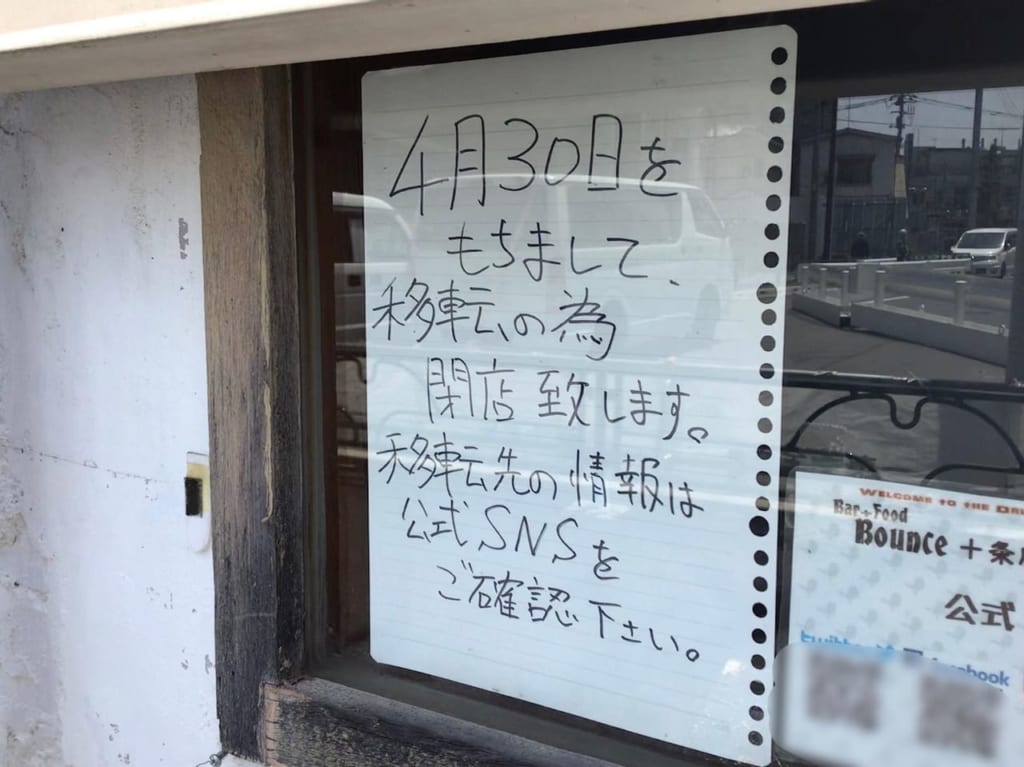 4月30日を
もちまして、
移転の為
閉店致します。
移転先の情報は
公式SNSを
ご確認下さい。
WELCOME TO THE
Bar+Food
Bounce + 条
公式
twitter facebook